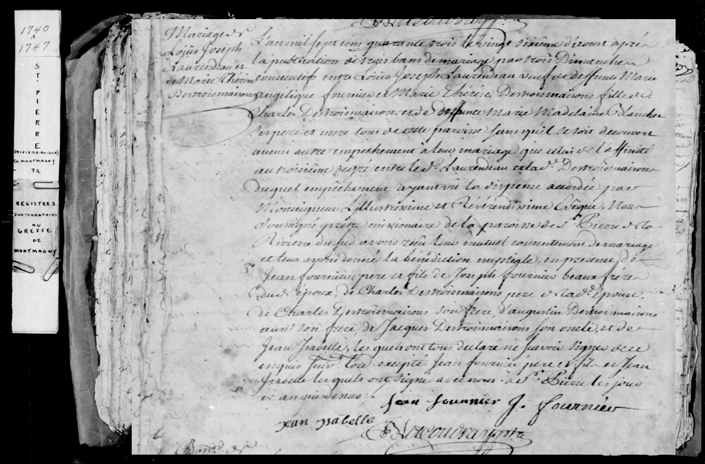 1740
A
1747
ST. PIERRE
(RIVIERE-DU-SUD)
Co MONTMAGNY
REGISTRES
PHOTOGRAPHIES
AU
GREFFE
DE
MONTMAGNY
Mariage de
Loüis Joseph
Laurendeau et
de Marie Therese
Desroismaisons
L'an mil sept cens quarante trois le vingt sixieme d'aoust après
la publication de trois bans de mariage par trois Dimanches
consecutifs entre Loüis Joseph Laurendeau veuf de deffunte Marie
angelique fournier et Marie Therese Desroismaisons fille de
Charles Desroismaisons et de deffunte Marie Madelaine
ses pere et mere tous de cette paroisse sans qu'il se soit decouvert
aucun autre empeschement a leur mariage que celui de l'affinité
au troisième degré entre led. Laurendeau et lad. Desroismaisons
duquel empêchement ayant vû la dispense accordée par
Monseigneur L'Illustrissime et Révérendissime Evêque, Nous
Soussigné prêtre missionaire de la paroisse de St Pierre
Riviere du sud avons reçu leur mutuel consentement de mariage
et leur avons donné la bénédiction nuptiale, en presence de
Jean fournier pere et fils de Joseph fournier beaux frere
dud. époux, de Charles Desroismaisons pere de lad. épouse,
de Charles Desroismaisons son frere, d'augustin Desroismaisons
aussi son frere de Jacques Desroismaisons son oncle, et de
Jean Isabelle, lesquels ont tous declaré ne savoir signer de ce
enquis suiv. l'ord. excepté Jean fournier pere et fils et Jean
Isabelle lesquels ont signé avec nous a St. Pierre les jour
et an que dessus.
Jean fournier J. fournier
jean isabelle